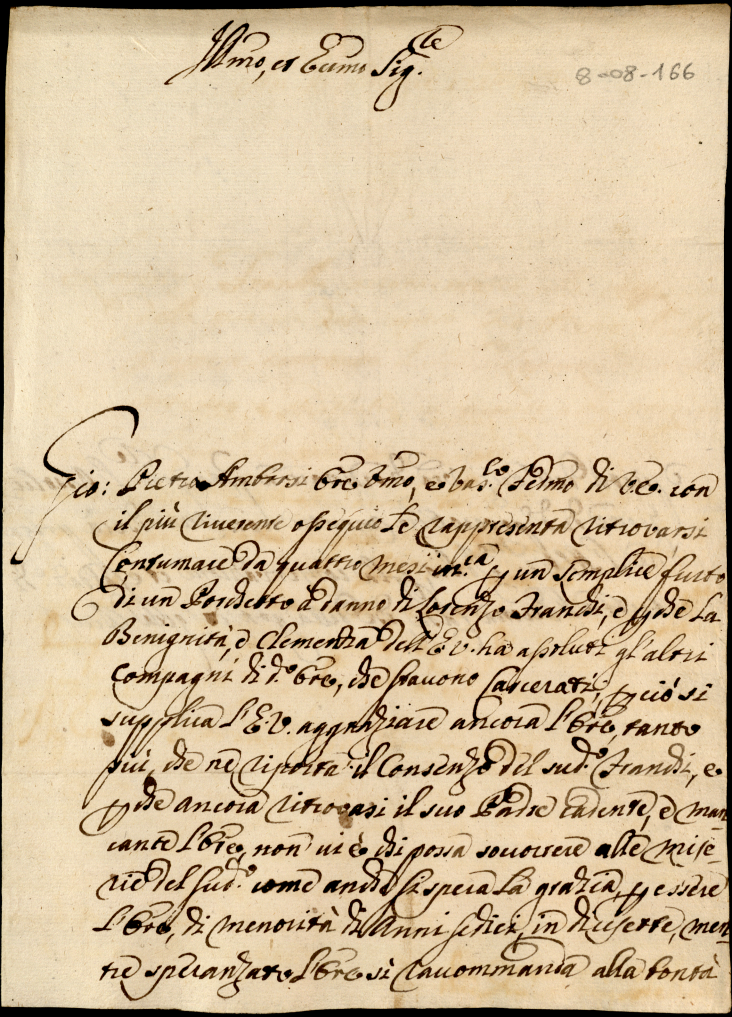 Illmo, et Eccmo Sig.re
8-08-166
Gio: Pietro Ambrosi Ore Vmo, e vas.lo fedmo di V.E. con
il più riverente ossequio Le rappresenta ritrovarsi
Contumace da quattro mesi in c.a p un semplice furto
di un Porchetto à danno di Lorenzo Franchi, è pche La
Benignità, è Clemenza dell'E.V. hà assoluti gl'altri
Compagni di d.o Ore, che stavono Carcerati, pciò si
supplica l'E.V. aggraziare ancora l'Ore, tanto
più, che ne riporta il Consenzo del sud.o Franchi, e
pche ancora ritrovasi il suo Padre cadente, è man
cante l'Ore, non vi è chi possa soccorrere alle mise
rie del sud.o come anche si spera La grazia, p essere
L'Ore, di menorità di Anni sedici, in dicisette, men
tre speranzato l'Ore si raccommanda alla bontà